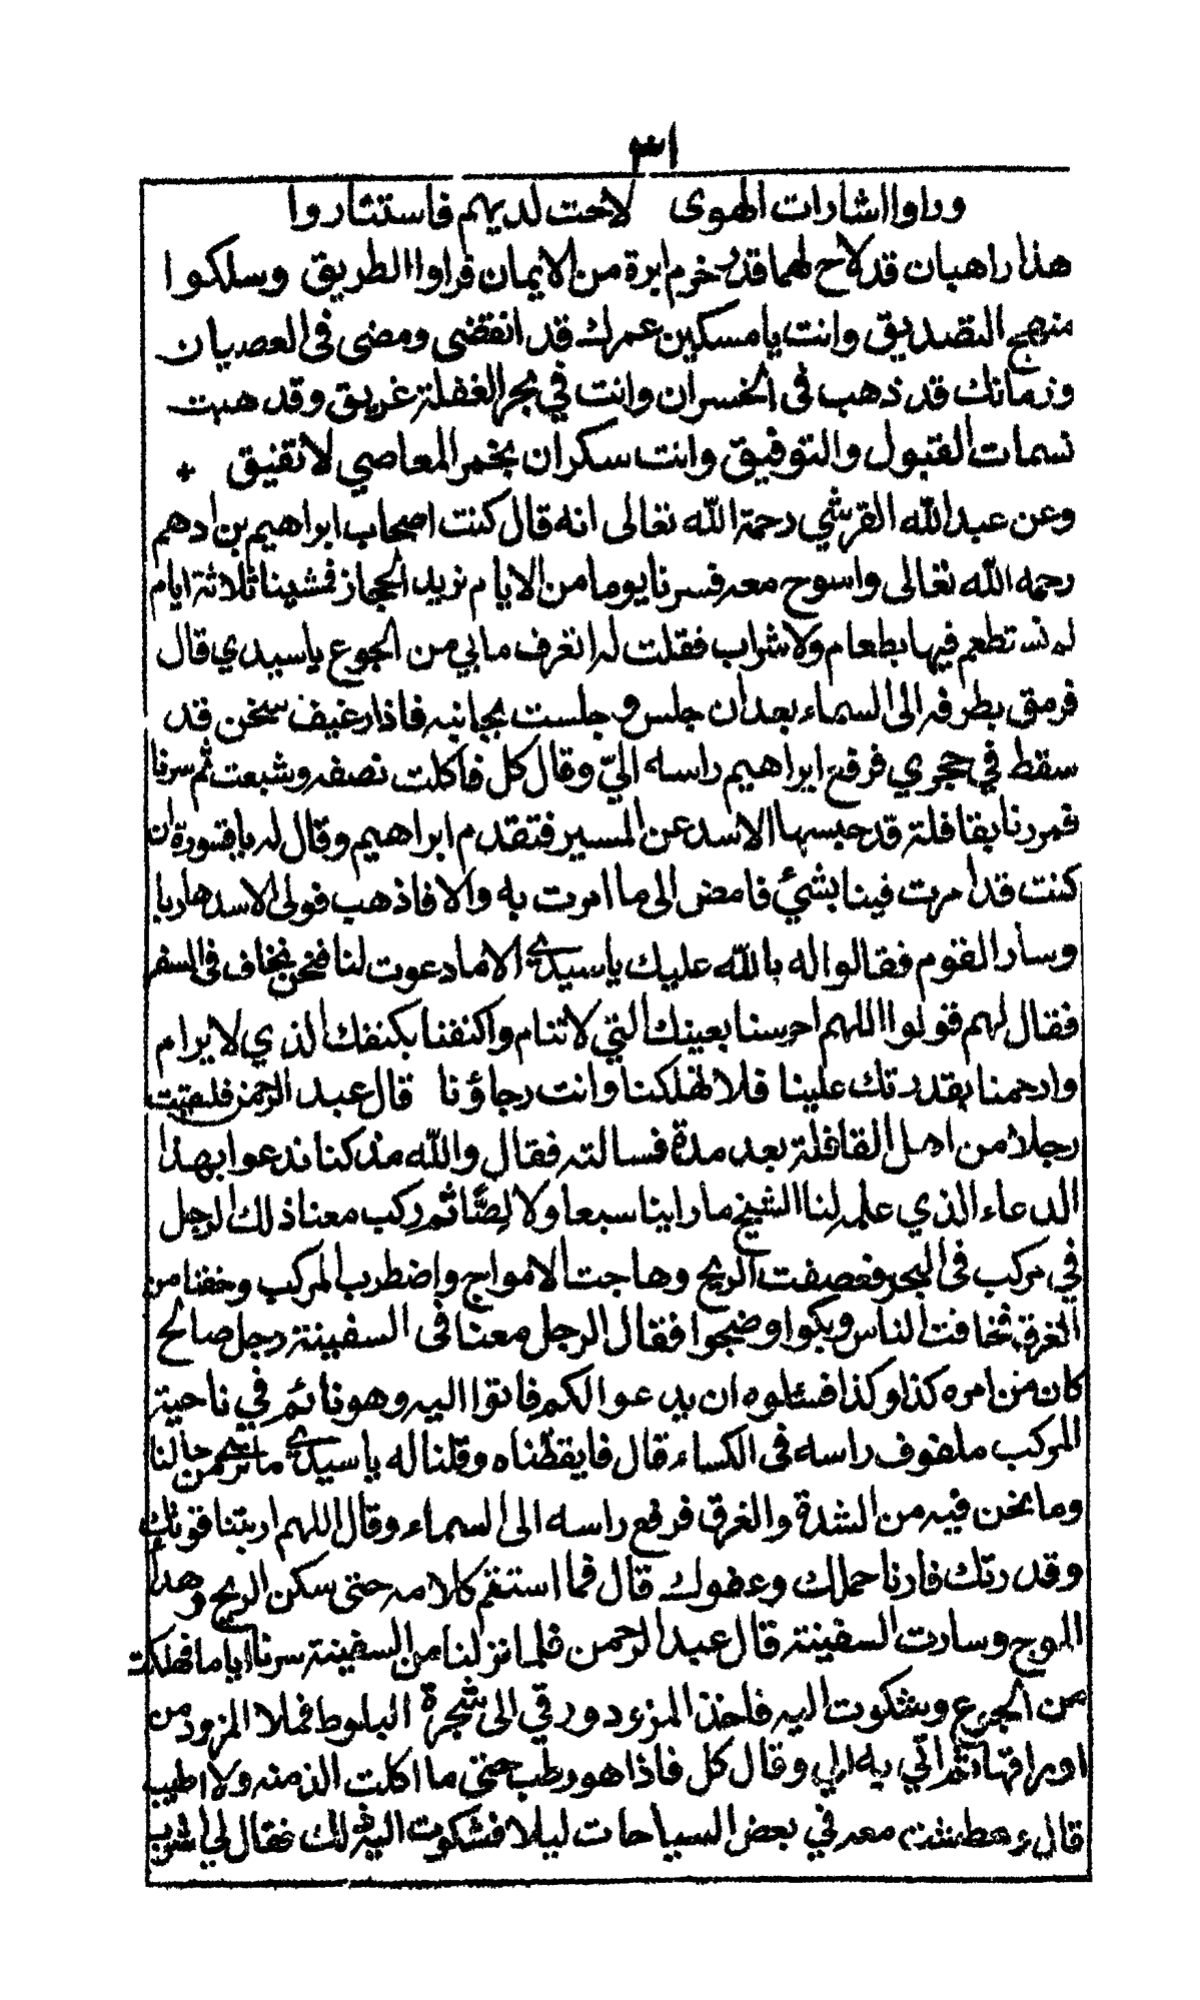 ٣١
وراوا اشارات الهوى لاحت لديهم فاستناروا
هذا راهبان قد لاح لهما قدر خرم ابرة من الايمان فراوا الطريق وسلكوا
منهج التصديق وانت يا مسكين عمرك قد انقضى ومضى فى العصيان
وزمانك قد ذهب فى الخسران وانت في بحر الغفلة غريق وقد هبت
نسمات القبول والتوفيق وانت سكران بخمر المعاصي لا تفيق
وعن عبد الله القرشي رحمة الله تعالى انه قال كنت اصحاب ابراهيم بن ادهم
رحمه الله تعالى واسوح معه فسرنا يوما من الايام نريد الحجاز فمشينا ثلاثة ايام
لم نستطعم فيها بطعام ولا شراب فقلت له اتعرف ما بي من الجوع يا سيدي قال
فرمق بطرفه الى السماء بعد ان جلس وجلست بجانبه فاذا رغيف سخن قد
سقط في حجري فرفع ابراهيم راسه اليّ وقال كل فاكلت نصفه وشبعت ثم سرنا
فمررنا بقافلة قد حبسها الاسد عن المسير فتقدم ابراهيم وقال له يا قسورة ان
كنت قد امرت فينا بشئ فامض الى ما امرت به والا فاذهب فولى الاسد هاربا
وسار القوم فقالوا له بالله عليك يا سيدي الا ما دعوت لنا فنحن نخاف فى السفر
فقال لهم قولوا اللهم احرسنا بعينك التي لا تنام واكنفنا بكنفك الذي لا يرام
وارحمنا بقدرتك علينا فلا تهلكنا وانت رجاؤنا قال عبد الرحمن فلقيت
رجلا من اهل القافلة بعد مدة فسالته فقال والله مذ كنا ندعوا بهذا
الدعاء الذي علمه لنا الشيخ ما راينا سبعا ولا لصًّا ثم ركب معنا ذلك الرجل
في مركب فى البحر فعصفت الريح وهاجت الامواج واضطرب المركب وخفنا من
الغرق فخافت الناس وبكوا وضجوا فقال الرجل معنا فى السفينة رجل صالح
كان من امره كذا وكذا فسئلوه ان يدعو الكم فاتوا اليه وهو نائم في ناحية
المركب ملفوف راسه فى الكساء قال فايقظناه وقلنا له يا سيدي ما ترحم حالنا
وما نحن فيه من الشدة والغرق فرفع راسه الى السماء وقال اللهم اريتنا قوتك
وقدرتك فارنا حملك وعفوك قال فما استتم كلامه حتى سكن الريح وهدا
الموج وسارت السفينة قال عبد الرحمن فلما نزلنا من السفينة سرنا اياما فهلكت
من الجوع وشكوت اليه فاخذ المزود ورقي الى شجرة البلوط فملا المزود من
اوراقها ثم اتي به الي وقال كل فاذا هو رطب جني ما اكلت الذ منه ولا اطيب
قال وعطشت معه في بعض السياحات ليلا فشكوت اليه ذلك فقال لي اشرب